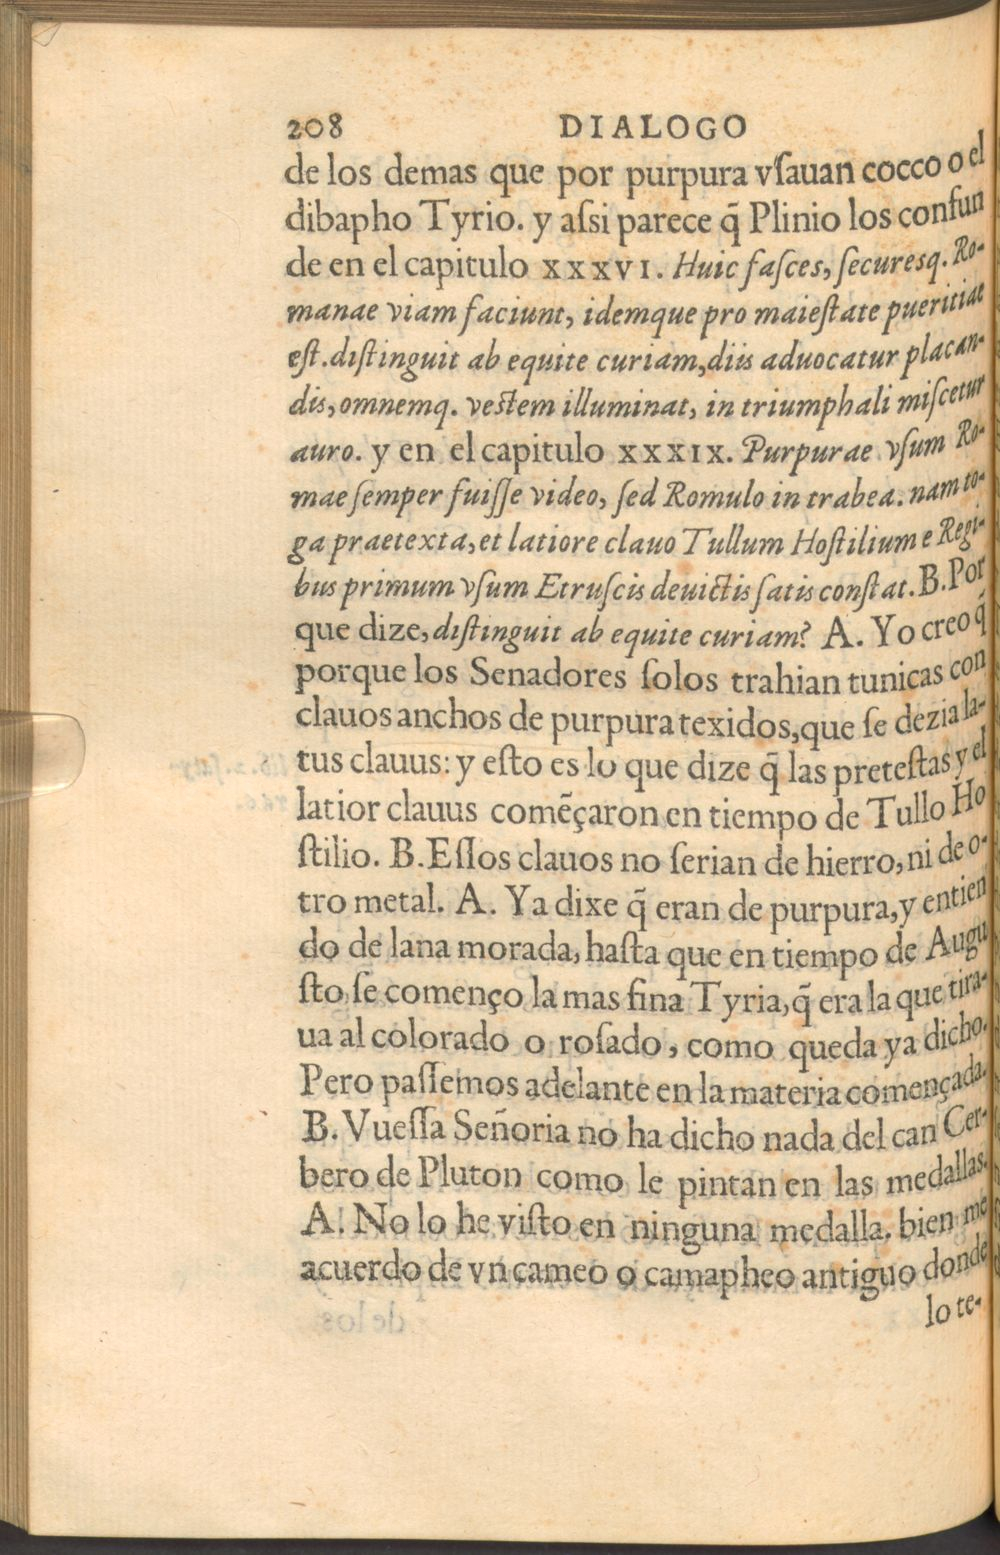 208 DIALOGO
de los demas que por purpura vſauan cocco o el
dibapho Tyrio. y aſsi parece q̃ Plinio los confun
de en el capitulo XXXVI. Huic faſces, ſecuresq. Ro-
manae viam faciunt, idemque pro maieſtate pueritiae
eſt. diſtinguit ab equite curiam, diis aduocatur placan-
dis, omnemq. veſtem illuminat, in triumphali miſcetur
auro. y en el capitulo XXXIX. Purpurae vſum Ro-
mae ſemper fuiſſe video, ſed Romulo in trabea. nam to-
ga praetexta, et latiore clauo Tullum Hoſtilium e Regi-
bus primum vſum Etruſcis deuictis ſatis conſtat. B. Por
que dize, diſtinguit ab equite curiam? A. Yo creo q̃
porque los Senadores ſolos trahian tunicas con
clauos anchos de purpura texidos, que ſe dezia la-
tus clauus: y eſto es lo que dize q̃ las preteſtas y el
latior clauus comẽçaron en tiempo de Tullo Ho
ſtilio. B. Eſſos clauos no ſerian de hierro, ni de o-
tro metal. A. Ya dixe q̃ eran de purpura, y entien
do de lana morada, haſta que en tiempo de Augu
ſto ſe començo la mas fina Tyria, q̃ era la que tira-
ua al colorado o roſado, como queda ya dicho.
Pero paſſemos adelante en la materia començada.
B. Vueſſa Señoria no ha dicho nada del can Cer-
bero de Pluton como le pintan en las medallas.
A. No lo he viſto en ninguna medalla. bien me
acuerdo de vn çameo o camapheo antiguo donde
lo te-